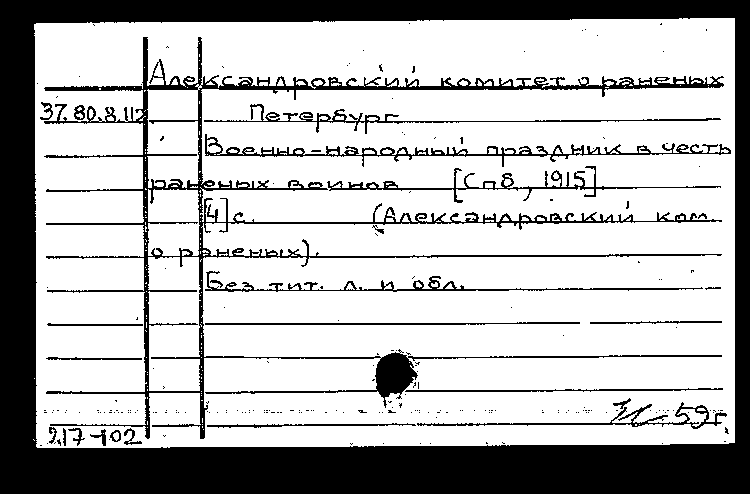 Александровский комитет о раненых
37.80.8.112 Петербург
Военно-народный праздник в честь
раненых воинов [Спб, 1915]
[4] с. (Александровский ком.
о раненых).
Без тит. л. и обл.
59 г.
217-102